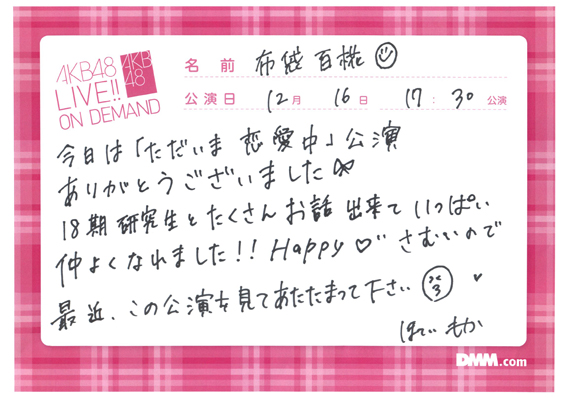 AKB48
LIVE!!
ON DEMAND
AKB
48
名前 布袋百椛
公演日 12月 16日 17:30 公演
今日は「ただいま 恋愛中」公演
ありがとうございました
18期研究生とたくさんお話出来ていっぱい
仲よくなれました!! Happy♡ さむいので
最近、この公演を見てあたたまって下さい
ほてい もか
DMM.com